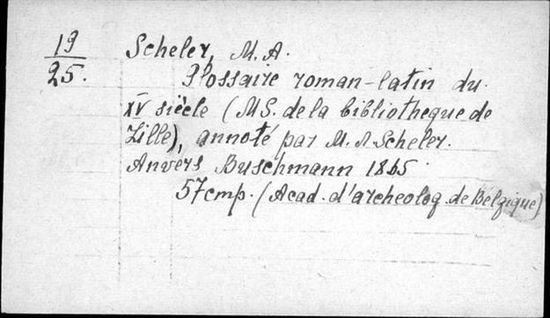 19/25. Scheler, M. A.
Glossaire roman-latin du
XV siècle (MS. de la bibliotheque de
Lille), annoté par M. A. Scheler.
Anvers Buschmann 1865
57 стр. (Acad. d'archeolog. de Belgique)